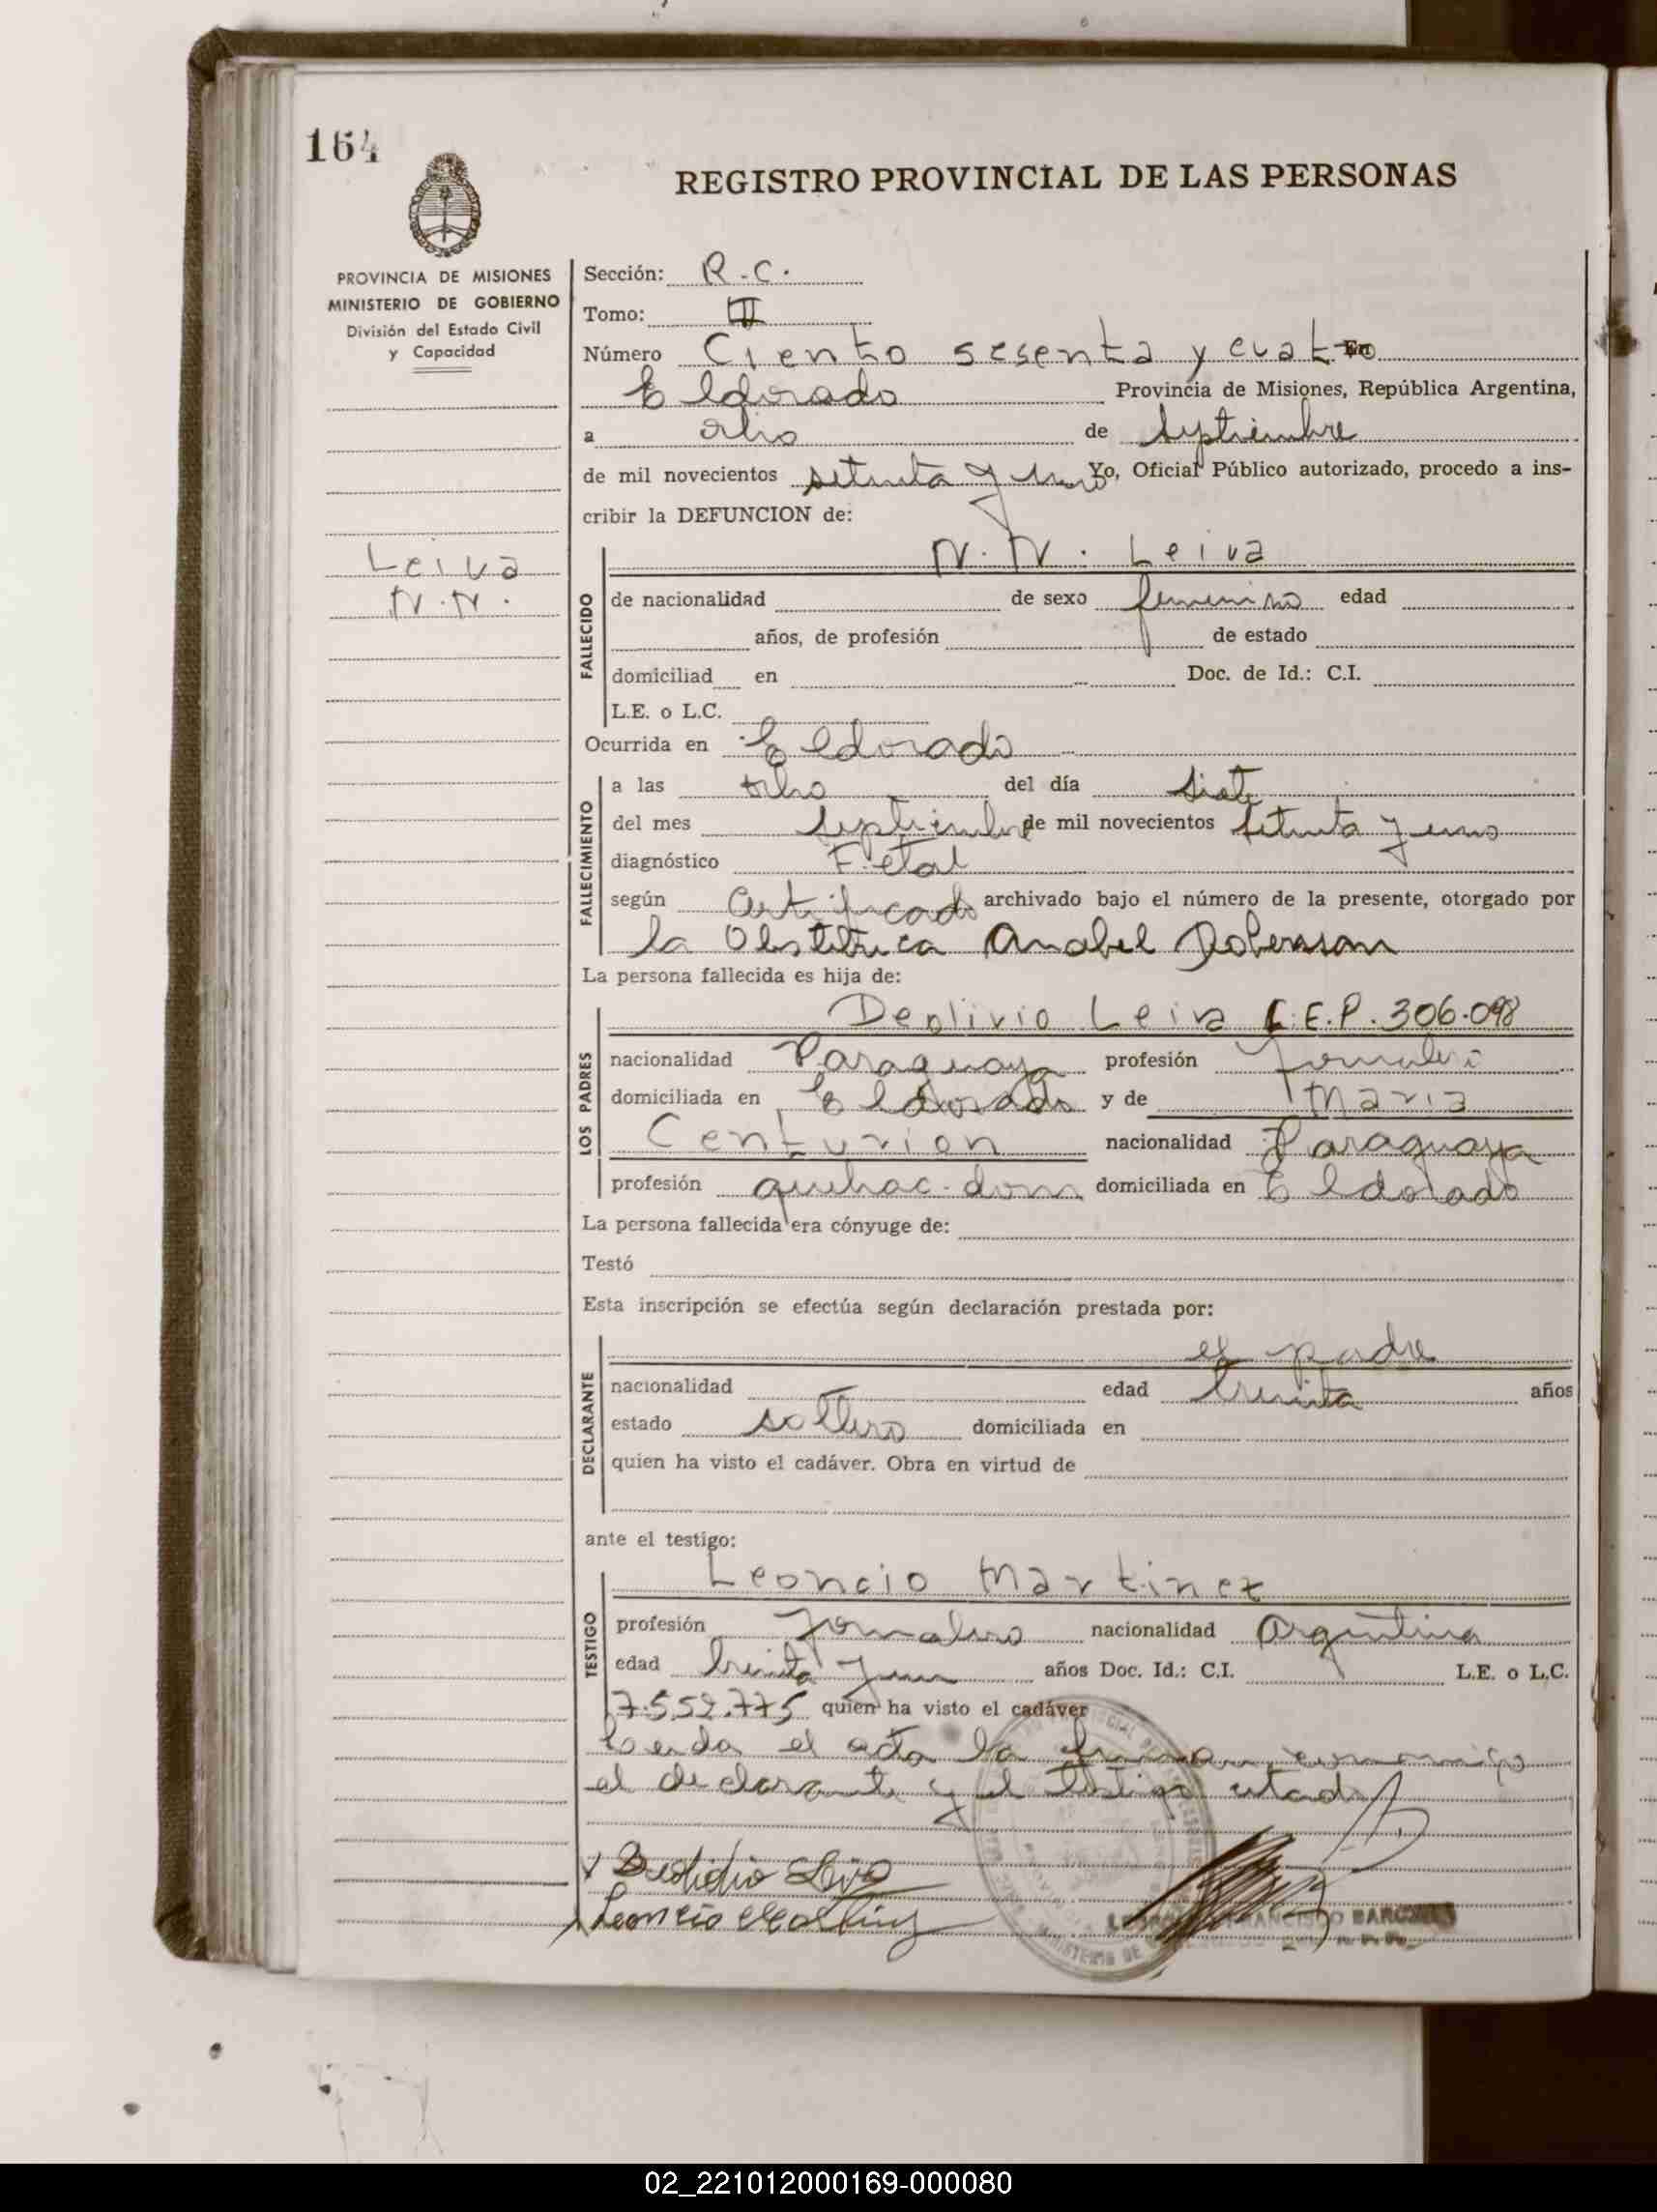 164
REGISTRO PROVINCIAL DE LAS PERSONAS
PROVINCIA DE MISIONES
MINISTERIO DE GOBIERNO
División del Estado Civil
y Capacidad
Leiva
N.N.
Sección: R.C.
Tomo: II
Número Ciento sesenta y cuatro En
Eldorado Provincia de Misiones, República Argentina,
a ocho de Septiembre
de mil novecientos setenta y uno Yo, Oficial Público autorizado, procedo a ins-
cribir la DEFUNCION de:
FALLECIDO
N.N. Leiva
de nacionalidad de sexo femenino edad
años, de profesión de estado
domiciliad en Doc. de Id.: C.I.
L.E. o L.C.
Ocurrida en Eldorado
FALLECIMIENTO
a las ocho del día siete
del mes Septiembre de mil novecientos setenta y uno
diagnóstico Fetal
según Certificado archivado bajo el número de la presente, otorgado por
la Obstetrica Anabel
La persona fallecida es hija de:
LOS PADRES
Leiva C.E.P. 306.098
nacionalidad Paraguaya profesión Jornalero
domiciliada en Eldorado y de Maria
Centurion nacionalidad Paraguaya
profesión quehac. dom domiciliada en Eldorado
La persona fallecida era cónyuge de:
Testó
Esta inscripción se efectúa según declaración prestada por:
DECLARANTE
el padre
nacionalidad edad treinta años
estado soltero domiciliada en
quien ha visto el cadáver. Obra en virtud de
ante el testigo:
TESTIGO
Leoncio Martinez
profesión Jornalero nacionalidad Argentina
edad treinta y un años Doc. Id.: C.I. L.E. o L.C.
7.552.775 quien ha visto el cadáver
Leida el acta la firman conmigo
el declarante y el testigo citado
Leiva
Leoncio Martinez
FRANCISCO
02_221012000169-000080